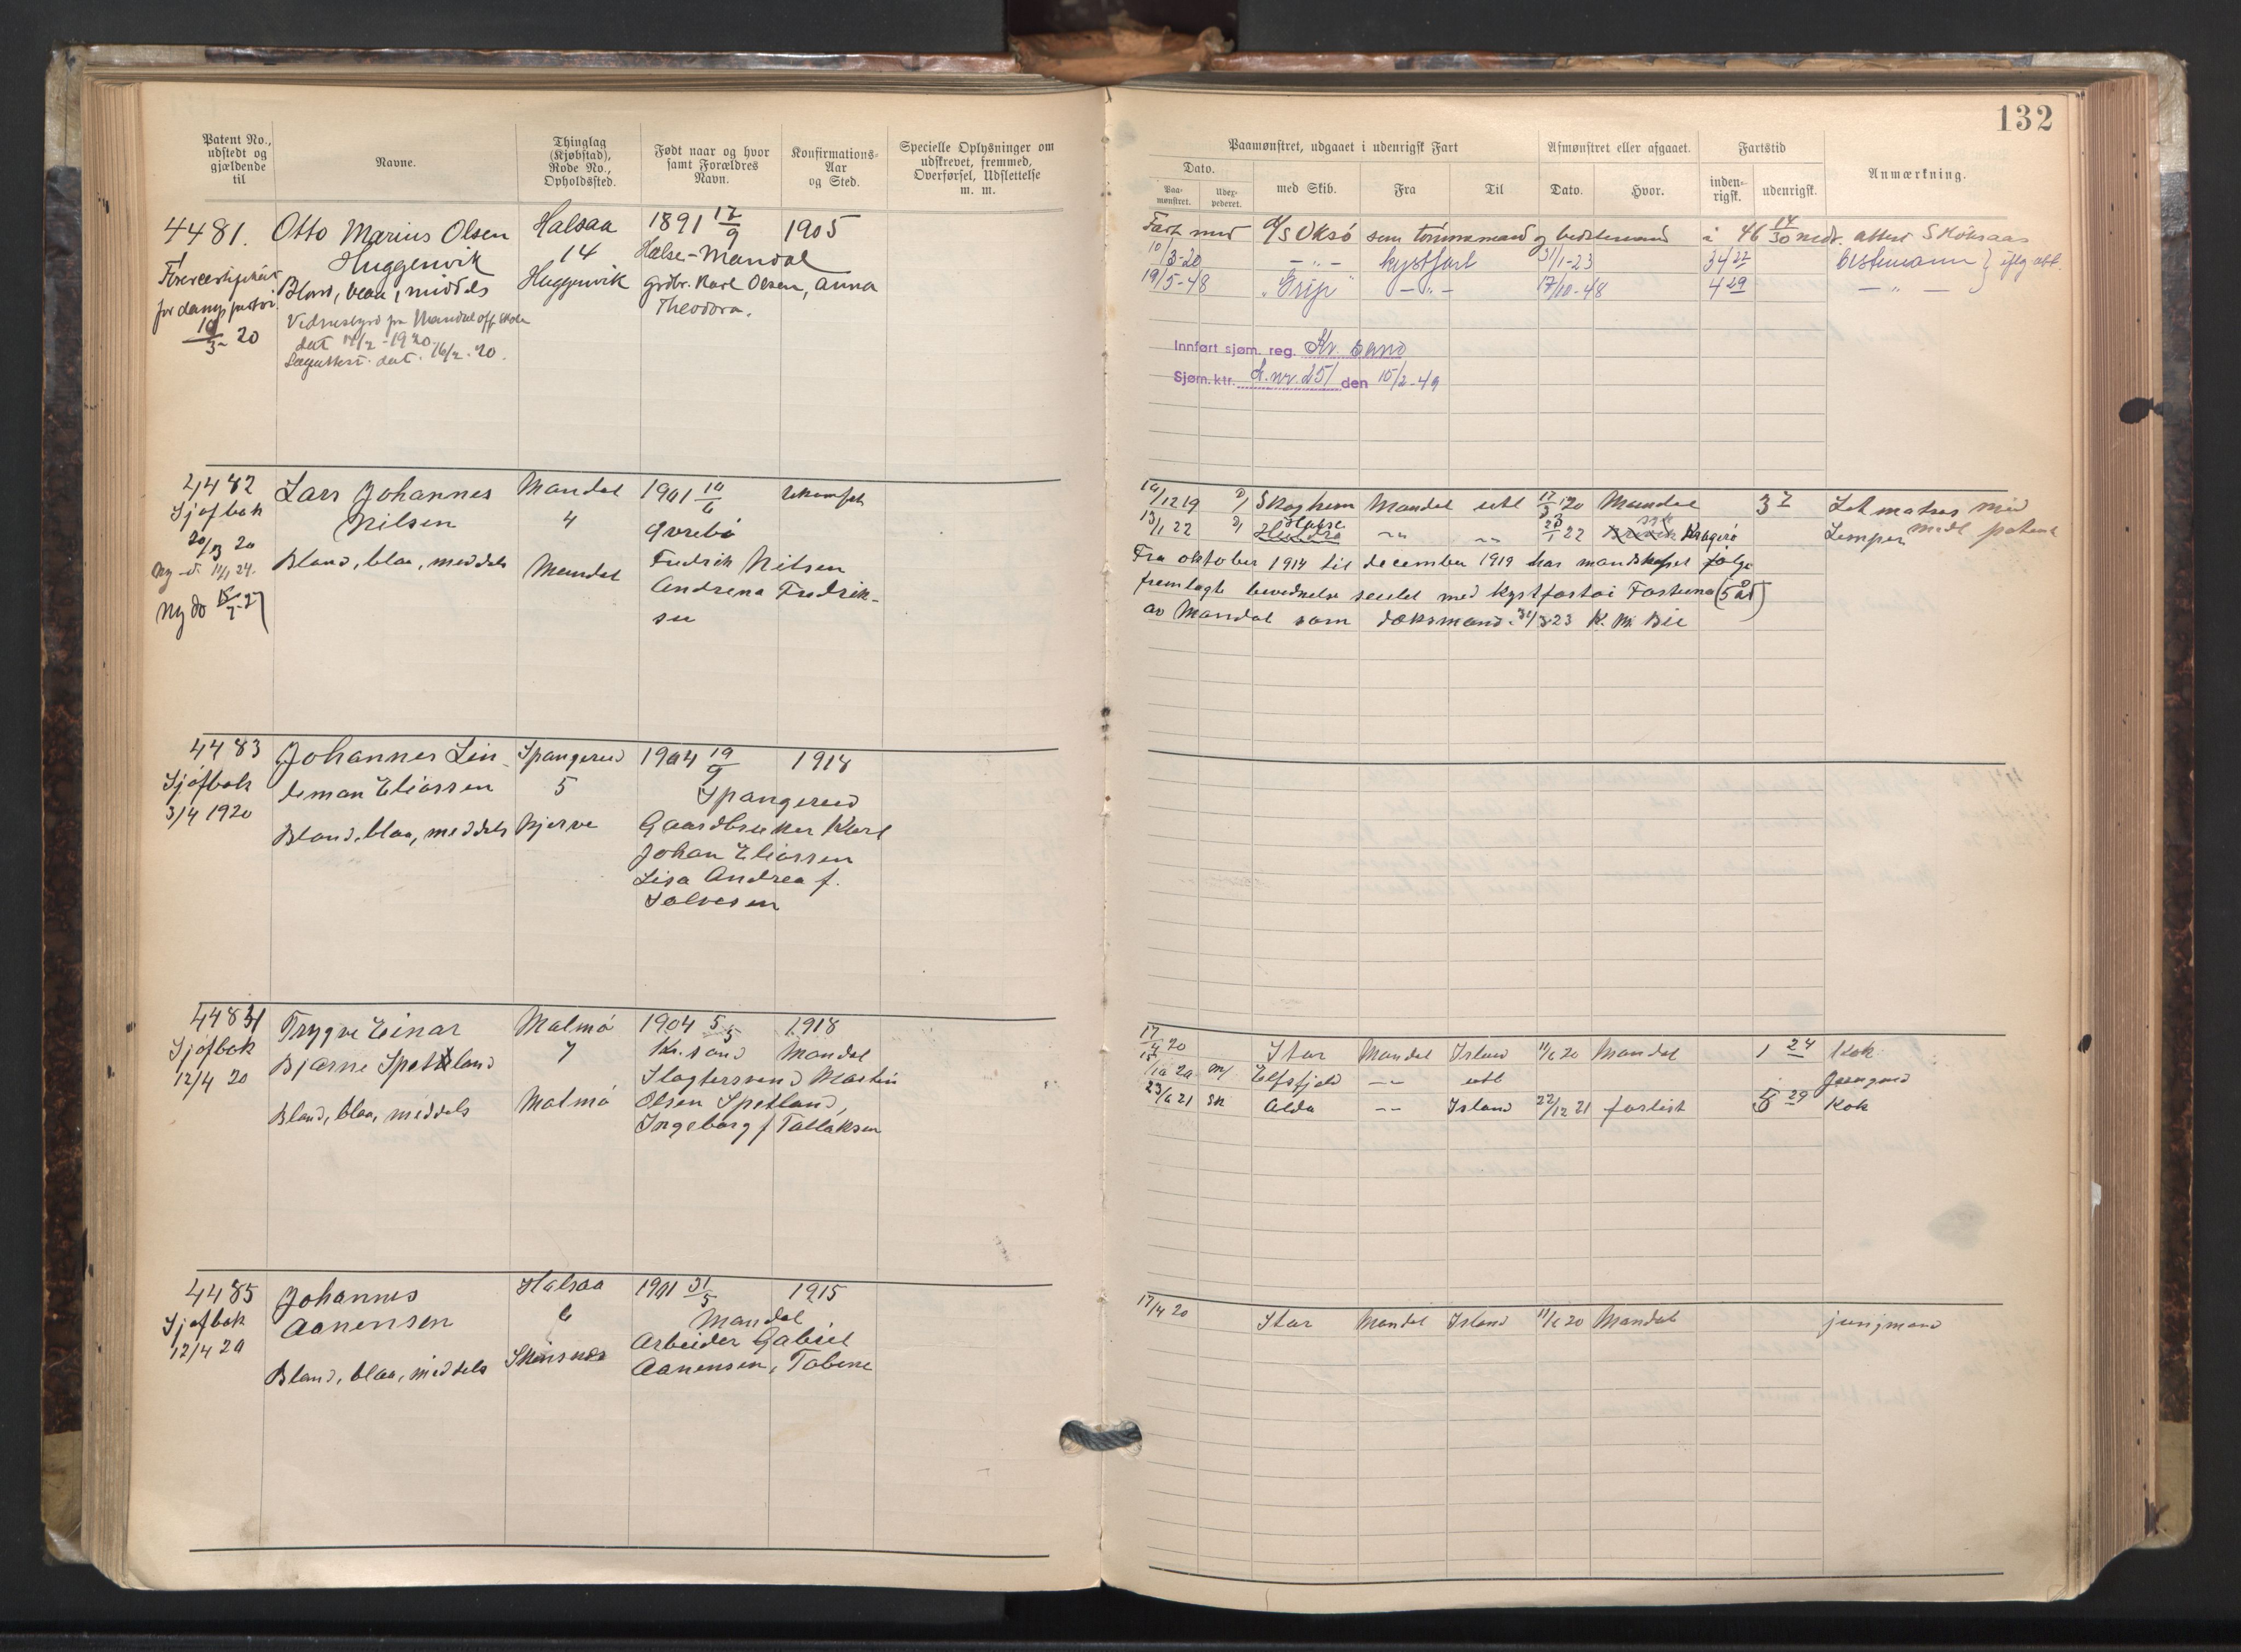 132
Patent No., udstedt og gjældende til
Navne.
Thinglag (Kjøbstad), Rode No., Opholdssted.
Født naar og hvor samt Forældres Navn.
Konfirmations-Aar og Sted.
Specielle Oplysninger om udskrevet, fremmed, Overførsel, Udslettelse m. m.
Paamønstret, udgaaet i udenrigsk Fart
Afmønstret eller afgaaet.
Fartstid
Anmærkning.
Dato.
Paa-mønstret.
Udex-pederet.
med Skib.
Fra
Til
Dato.
Hvor.
inden-rigsk.
udenrigsk.
4481. Otto Marius Olsen Halsaa 1891 17/9 1905
Huggenvik 14 Halse-Mandal
Blond, blaa, middels Huggenvik grdbr. Karl Olsen, Anna
Theodora.
Vidnesbyrd fra Mandal off. skole
dat 14/2-1920.
dat. 16/2-20.
20
Fart med D/S Oksø som tømmermand og bedstemand i 46 14/30 mdr.
10/3-20 - " - kystfart 31/1-23 34 22
19/5-48 "Grip" - " - 17/10-48 4 29
Innført sjøm. reg. Kr.sand
Sjøm.ktr. A.nr. 251 den 15/2-49
4482 Lars Johannes Mandal 1901 10/6
Sjøfbok Nilsen 4 Øvrebø
20/3 20 Blond, blaa, meddels Mandal Fredrik Nilsen
Ny 11/1 24. Andrena Fredrik-
Ny do sen
12 19 D/ Skogheim Mandal utl 20 Mandal 3 7 Let matros med
13/1 22 D/ 22 Kragerø Lemper
Fra oktober 1914 til december 1919 har mandskapet følge
fremlagte bevidnelse seilet med kystfartøi (5 år)
av Mandal som dæksmand. 31/3 23 K. M. Bie
4483 Johannes Lin- Spangereid 1904 19/9 1918
Sjøfbok deman Eliassen 5 Spangereid
3/4 1920 Blond, blaa, meddels Bjerve Gaardbruker Karl
Johan Eliassen
Lisa Andrea f.
Salvesen
4484 Trygve Einar Malmø 1904 5/5 1918
Sjøfbok Bjarne Spetland 7 Kr.sand Mandal
12/4 20 Slagtersvend Martin
Blond, blaa, meddels Malmø Olsen Spetland,
Ingeborg f Tallaksen
17/4 20 Star Mandal Island 11/6 20 Mandal 1 24 Kok
15/10 20 M/ Elfsfjeld -"- utl Jungmand
23/6 21 Sk Alda -"- Island 22/12 21 forlist 5 29 Kok
4485 Johannes Halsaa 1901 31/5 1915
Sjøfbok Aanensen 6 Mandal
12/4 20 Arbeider Gabriel
Blond, blaa, middels Skinsnes Aanensen, Tobine
17/4 20 Star Mandal Island 11/6 20 Mandal jungmand